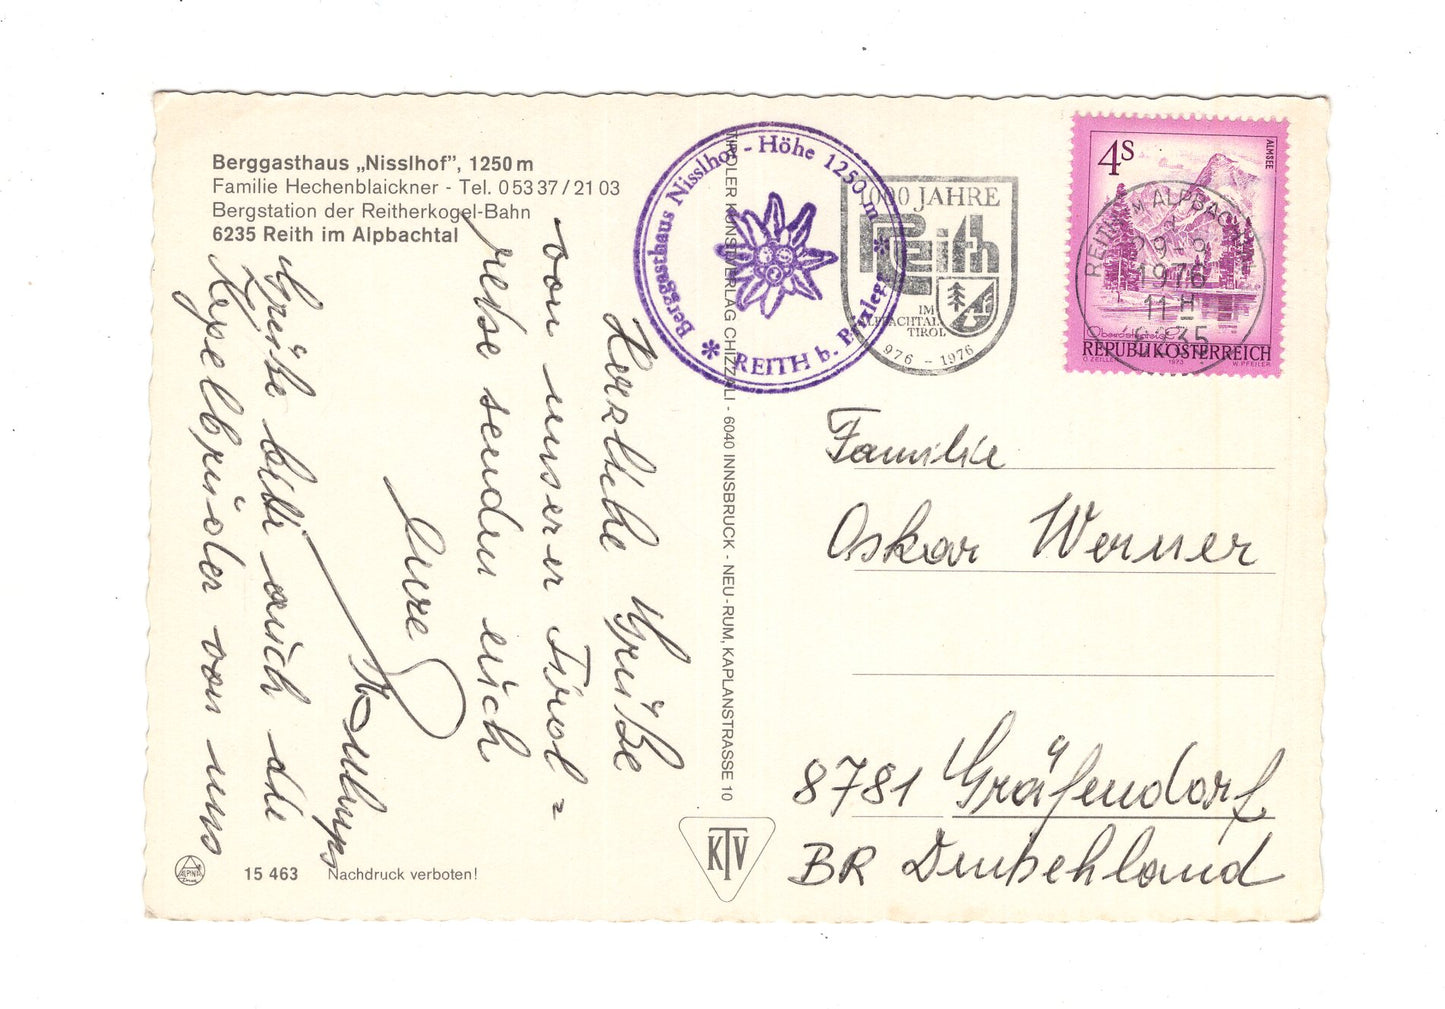 Berggasthaus „Nisslhof”, 1250 m
Familie Hechenblaickner - Tel. 0 53 37 / 21 03
Bergstation der Reitherkogel-Bahn
6235 Reith im Alpbachtal
Herzliche Grüße
von unserer Tirol =
reise senden euch
Eure
Grüße bitte auch die
Kegelbrüder von uns
15 463 Nachdruck verboten!
TIROLER KUNSTVERLAG CHIZZALI - 6040 INNSBRUCK - NEU-RUM, KAPLANSTRASSE 10
KTV
Berggasthaus Nisslhof - Höhe 1250 m
* REITH b. Brixlegg *
1000 JAHRE
Reith
IM
ALPBACHTAL
TIROL
976 - 1976
4S
ALMSEE
Oberösterreich
REPUBLIK ÖSTERREICH
O. ZEILLER 1973 W. PFEILER
REITH IM ALPBACHTAL
9-9
1976
11H
6235
Familie
Oskar Werner
8781 Gräfendorf
BR Deutschland